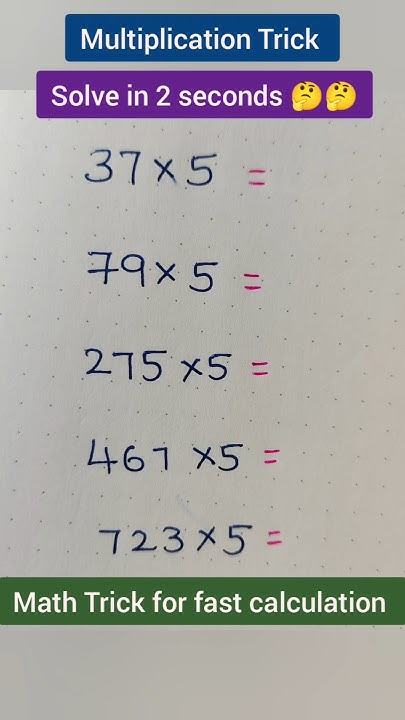 Multiplication Trick
Solve in 2 seconds 🤔🤔
37×5 =
79×5 =
275×5 =
467×5 =
723×5 =
Math Trick for fast calculation